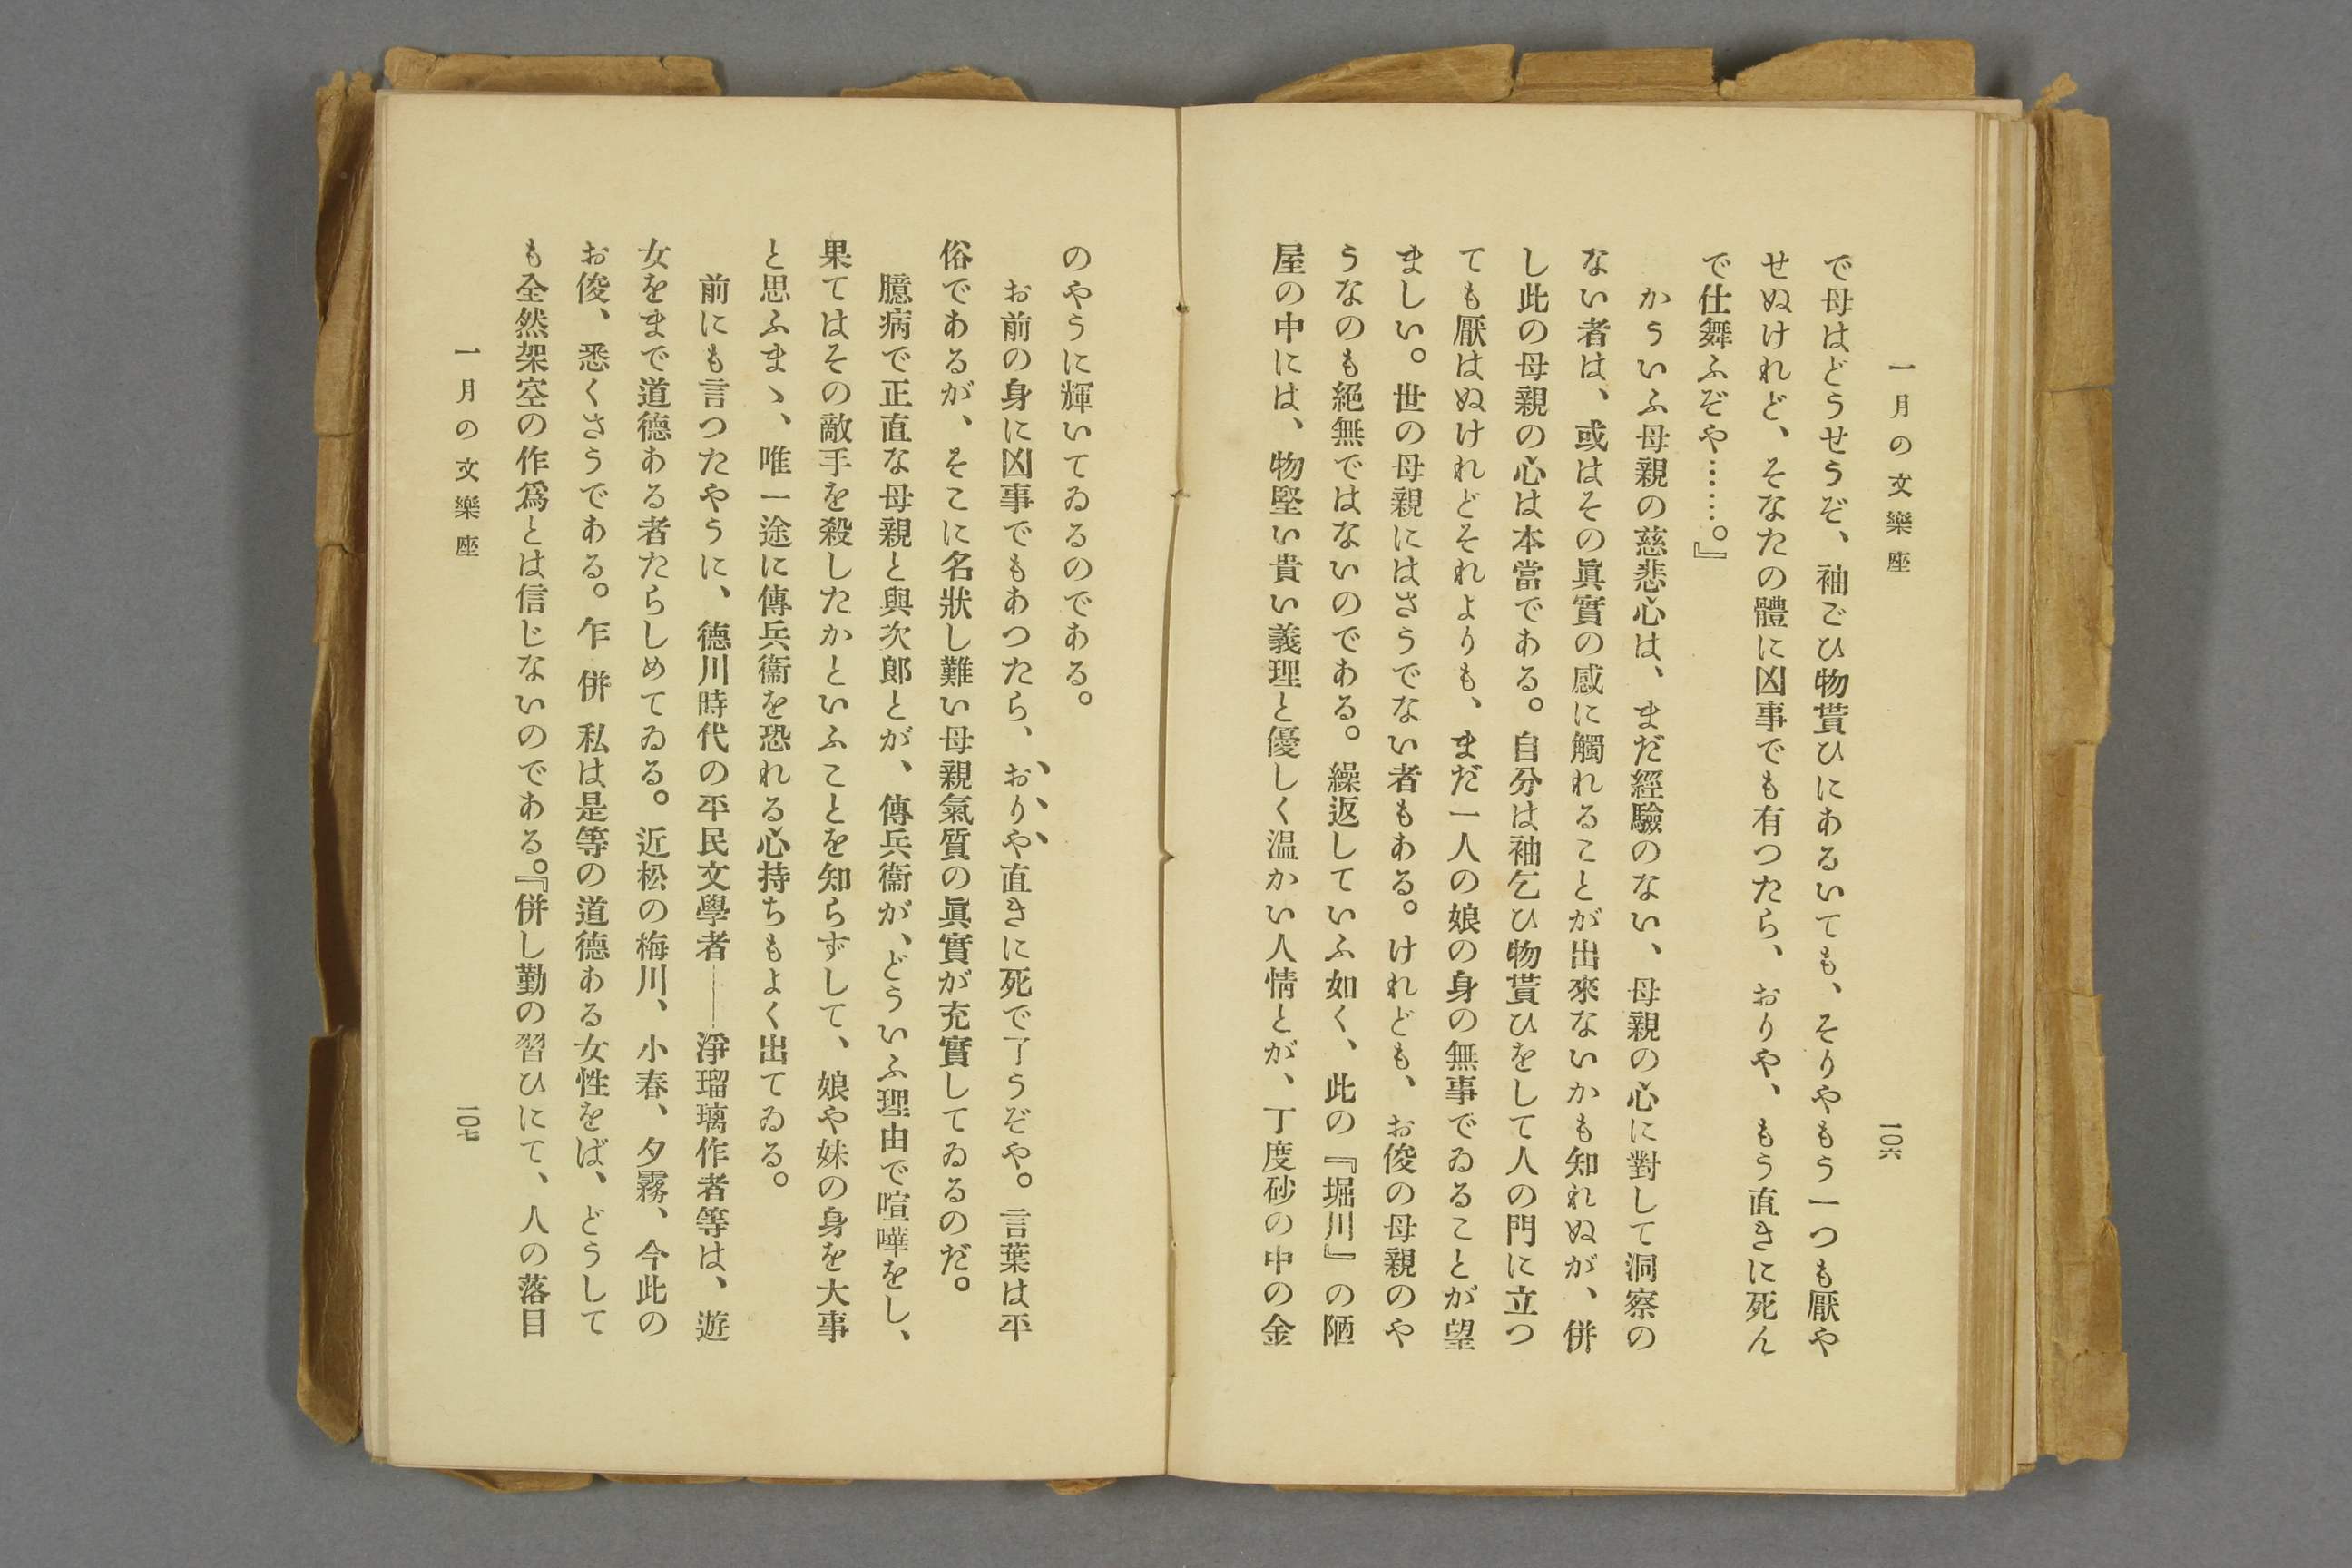 一月の文樂座
一〇六
で母はどうせうぞ、袖ごひ物貰ひにあるいても、そりやもう一つも厭や
せぬけれど、そなたの體に凶事でも有つたら、おりや、もう直きに死ん
で仕舞ふぞや……。』
かういふ母親の慈悲心は、まだ經驗のない、母親の心に對して洞察の
ない者は、或はその眞實の感に觸れることが出來ないかも知れぬが、併
し此の母親の心は本當である。自分は袖乞ひ物貰ひをして人の門に立つ
ても厭はぬけれどそれよりも、まだ一人の娘の身の無事でゐることが望
ましい。世の母親にはさうでない者もある。けれども、お俊の母親のや
うなのも絕無ではないのである。繰返していふ如く、此の『堀川』の陋
屋の中には、物堅い貴い義理と優しく温かい人情とが、丁度砂の中の金
のやうに輝いてゐるのである。
お前の身に凶事でもあつたら、おりや直きに死で了うぞや。言葉は平
俗であるが、そこに名狀し難い母親氣質の眞實が充實してゐるのだ。
臆病で正直な母親と與次郎とが、傳兵衞が、どういふ理由で喧嘩をし、
果てはその敵手を殺したかといふことを知らずして、娘や妹の身を大事
と思ふまゝ、唯一途に傳兵衞を恐れる心持ちもよく出てゐる。
前にも言つたやうに、德川時代の平民文學者――淨瑠璃作者等は、遊
女をまで道德ある者たらしめてゐる。近松の梅川、小春、夕霧、今此の
お俊、悉くさうである。乍併私は是等の道德ある女性をば、どうして
も全然架空の作爲とは信じないのである。『併し勤の習ひにて、人の落目
一月の文樂座
一〇七